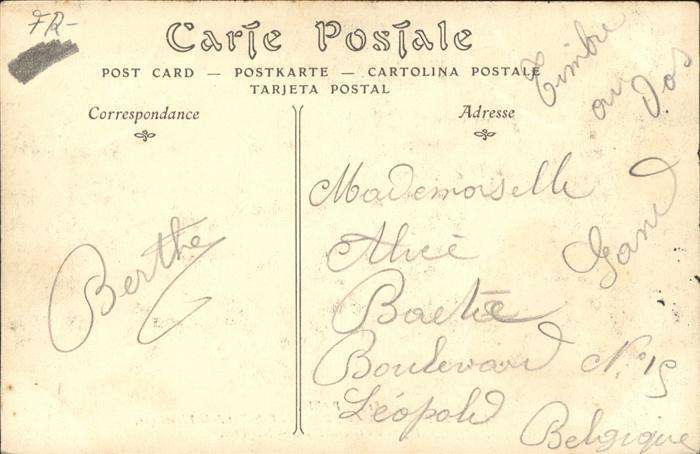 FR-
Carte Postale
POST CARD — POSTKARTE — CARTOLINA POSTALE
TARJETA POSTAL
Timbre
au Dos
Correspondance
Adresse
Berthe
Mademoiselle
Alice
Gand
Boulevard N° 15
Léopold
Belgique